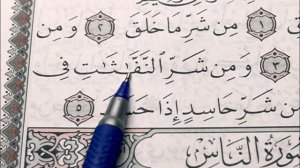 ١ مِن شَرِّ مَا خَلَقَ ٢ وَمِن
٣ وَمِن شَرِّ ٱلنَّفَّٰثَٰتِ فِى
شَرِّ حَاسِدٍ إِذَا ٥
سُورَةُ النَّاسِ